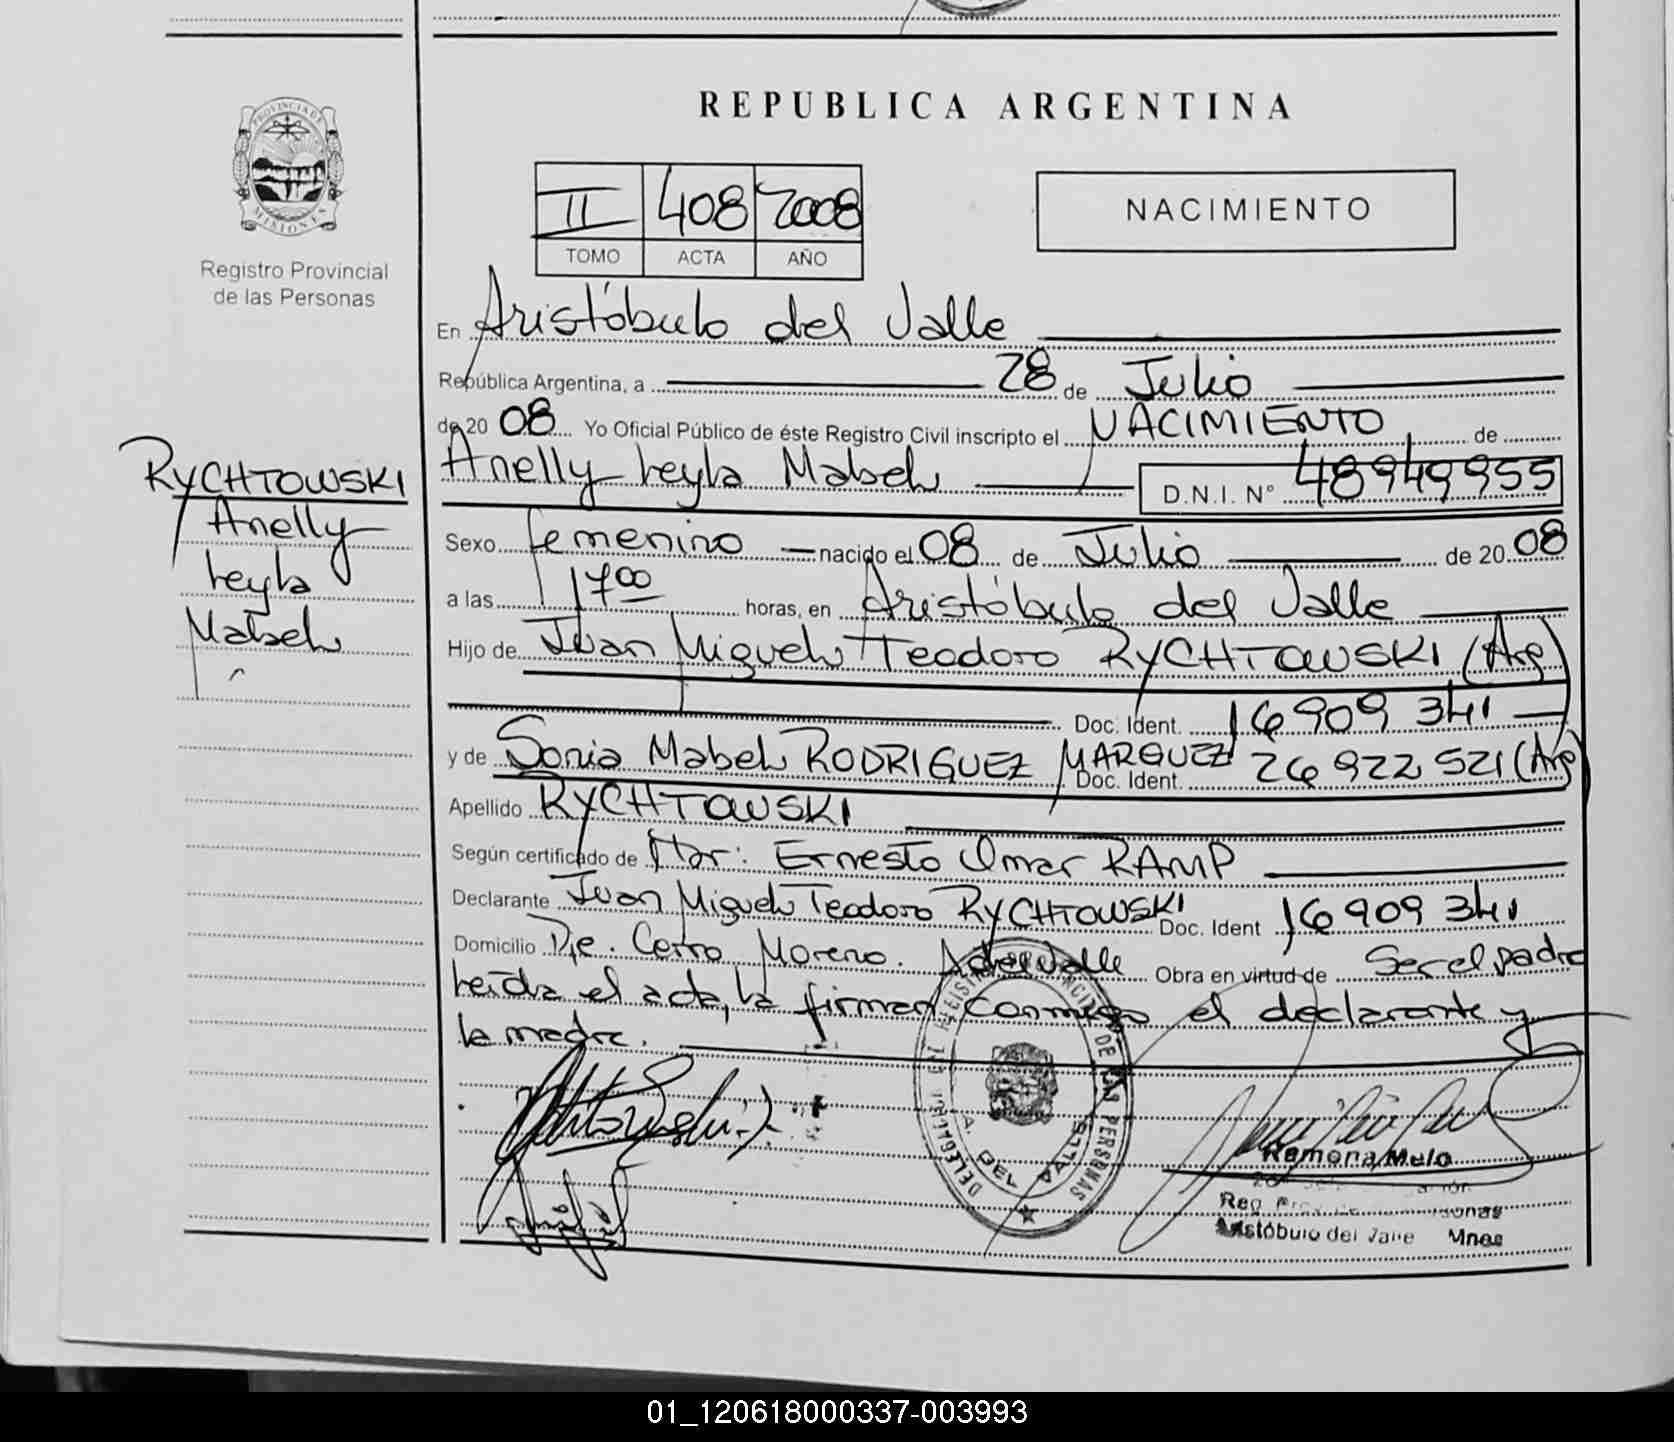 REPUBLICA ARGENTINA
PROVINCIA DE MISIONES
Registro Provincial
de las Personas
II 408 2008
TOMO ACTA AÑO
NACIMIENTO
En Aristóbulo del Valle
República Argentina, a 28 de Julio
de 20 08 Yo Oficial Público de éste Registro Civil inscripto el NACIMIENTO de
Anelly Leyla Mabel D.N.I. N° 48949955
RYCHTOWSKI
Anelly
Leyla
Mabel
Sexo femenino nacido el 08 de Julio de 20 08
a las 17 00 horas, en Aristóbulo del Valle
Hijo de Juan Miguel Teodoro RYCHTOWSKI (Arg)
Doc. Ident. 16 909 341
y de Sonia Mabel RODRIGUEZ MARQUEZ Doc. Ident. 26 922 521 (Arg)
Apellido RYCHTOWSKI
Según certificado de Ernesto Omar RAMP
Declarante Juan Miguel Teodoro RYCHTOWSKI Doc. Ident 16 909 341
Domicilio Pje. Cerro Moreno. A del Valle Obra en virtud de Ser el padre
Leída el acta, la firman conmigo el declarante y
la madre.
DELEGACION REGISTRO PROVINCIAL DE LAS PERSONAS
A. DEL VALLE
Ramona Melo
Aristóbulo del Valle Mnes
01_120618000337-003993